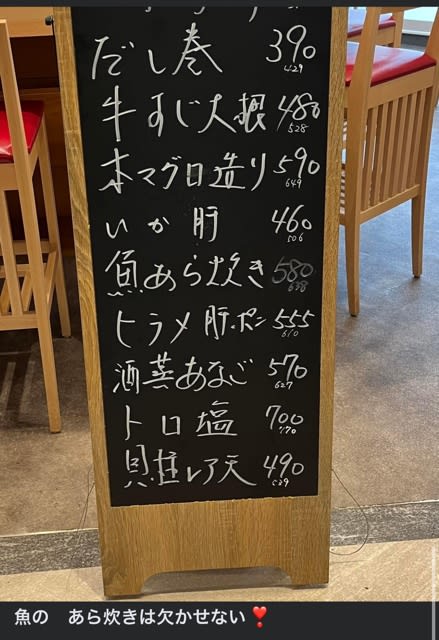 だし巻 390
429
牛すじ大根 480
528
本マグロ造り 590
649
いか肝 460
506
魚あら炊き 580
638
ヒラメ肝ポン 555
610
酒蒸あなご 570
627
トロ塩 700
770
レア天 490
539
魚の　あら炊きは欠かせない❣️